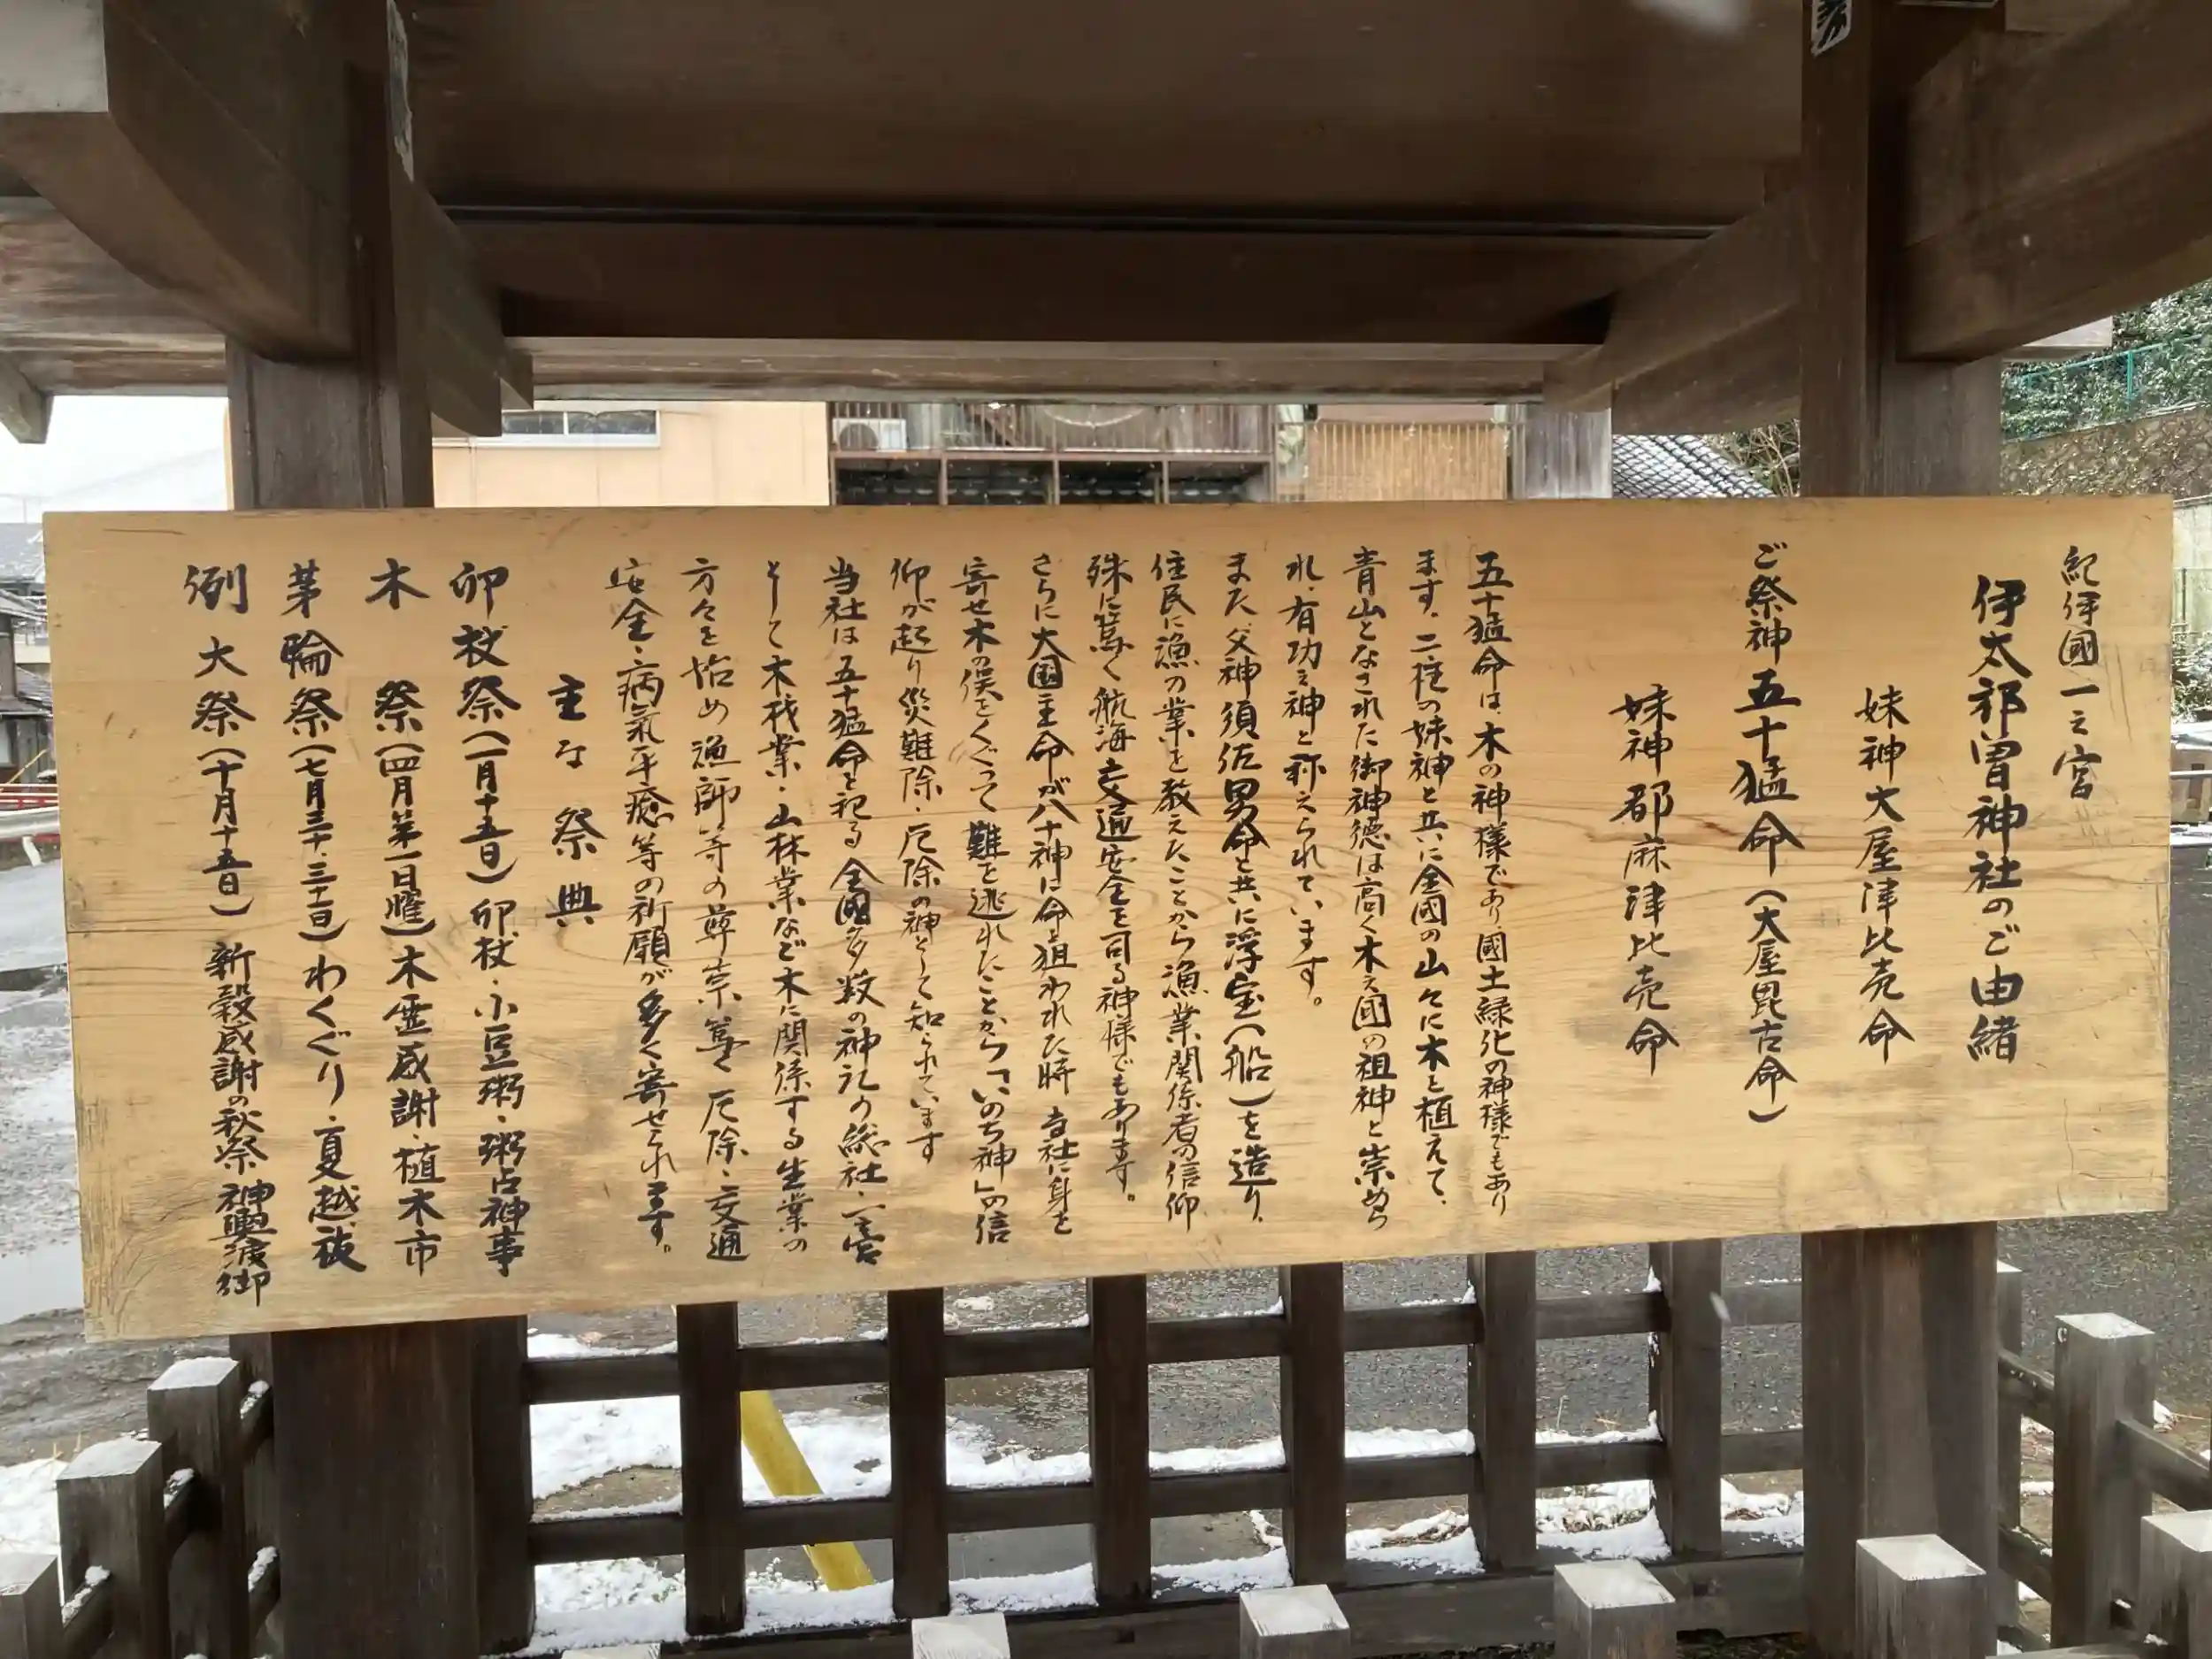 紀伊國一之宮
伊太祁曽神社のご由緒
妹神大屋津比売命
ご祭神五十猛命(大屋毘古命)
妹神都麻津比売命
五十猛命は、木の神様であり國土緑化の神様でもあり
ます。二柱の妹神と共に全國の山々に木を植えて、
青山となされた御神徳は高く木之國の祖神と崇めら
れ、有功之神と称えられています。
また、父神須佐男命と共に浮宝(船)を造り、
住民に漁の業を教えたことから漁業関係者の信仰
殊に篤く航海交通安全を司る神様でもあります。
さらに大国主命が八十神に命を狙われた時 当社に身を
寄せ木の俣をくぐって難を逃れたことから「いのち神」の信
仰が起り災難除・厄除の神として知られています
当社は五十猛命を祀る全國多数の神社の総社・一之宮
として木材業・山林業など木に関係する生業の
方々を始め漁師等の尊崇篤く厄除・交通
安全・病氣平癒等の祈願が多く寄せられます。
主な祭典
卯杖祭(一月十五日)卯杖・小豆粥・粥占神事
木祭(四月第一日曜)木霊感謝・植木市
茅輪祭(七月三十・三十一日)わくぐり・夏越祓
例大祭(十月十五日)新穀感謝の秋祭 神輿渡御